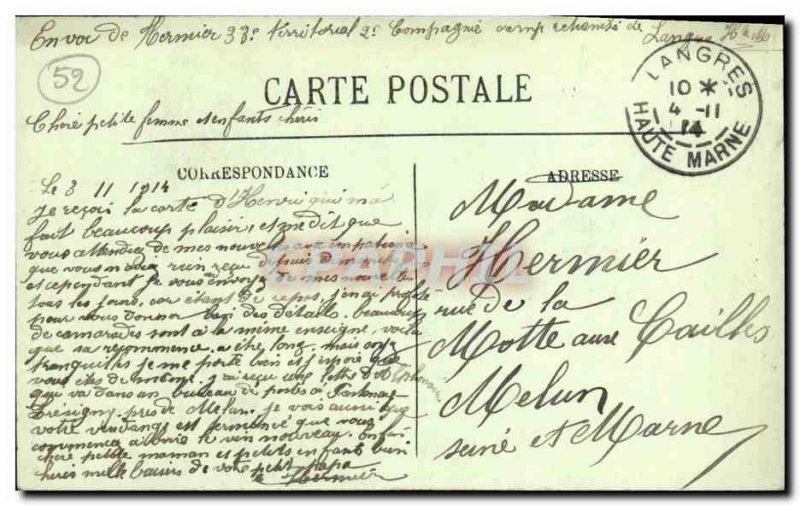 Envoi de Hermier 33e territorial 2e Compagnie camp retranché de Langres Hte M
52
CARTE POSTALE
LANGRES
10 *
4 -11
14
HAUTE MARNE
Chere petite femme et enfants chéris
CORRESPONDANCE
ADRESSE
Le 3 11 1914
Je reçois la carte d'Henri qui m'a
fait beaucoup plaisir, et me dit que
vous attendiez de mes nouvelles aux impatiences
que vous n'avez rien reçu depuis
et cependant je vous envoye de mes nouvelle
tous les jours, car étant de repos, j'en ai profité
pour vous donner des détails. beaucoup
de camarades sont à la même enseigne, voila
que sa recommence a être long. mais soyez
tranquilles je me porte bien et j'espère que
vous êtes de même. j'ai reçu une lettre
qui va dans un bureau de postes à Fontenay
Trésigny près de Melun. je vois aussi que
votre vendange est fermencé que vous
commencez a boire le vin nouveau.
chère petite maman et petits enfants bien
chéris mille baisers de votre petit papa
Hermier
Madame
Hermier
rue de la
Motte aux Cailles
Melun
seine et Marne